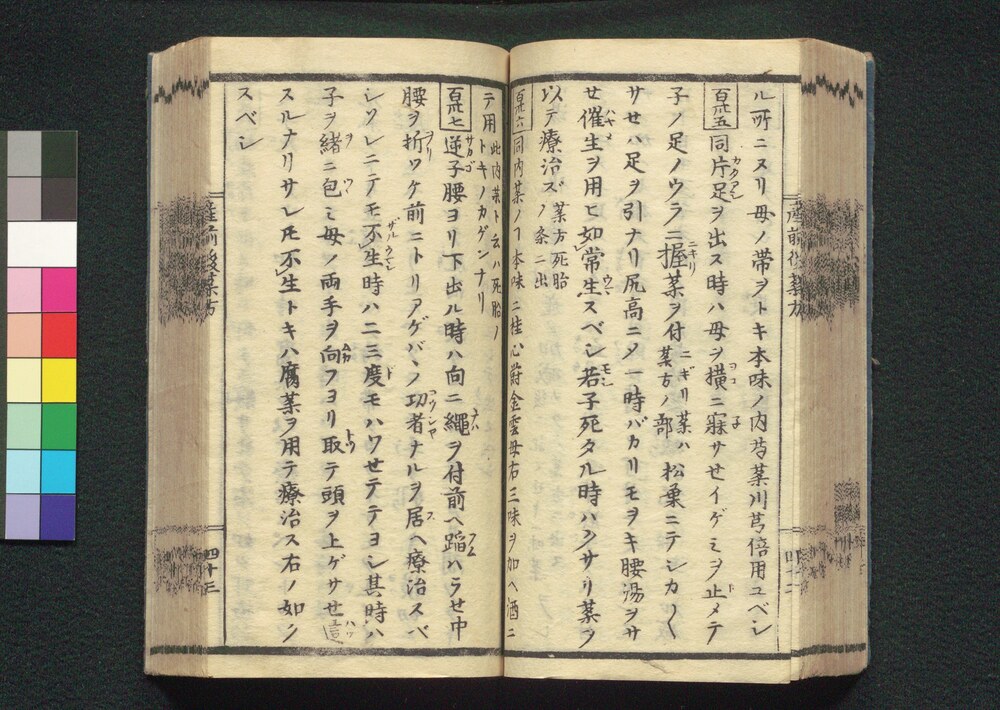 ル所ニスリ母ノ帯ヲトキ本味ノ内芍薬川芎倍用ユベシ
百卅五 同片足ヲ出ス時ハ母ヲ横ニ寐サセイゲミヲ止メテ
子ノ足ノウラニ握薬ヲ付 ニギリ薬ハ薬方ノ部 松葉ニテシカ〱
サセハ足ヲ引ナリ尻高ニタ一時バカリモヲキ腰湯ヲサ
せ催生ヲ用ヒ如常生スベシ若子死タル時ハクサリ薬ヲ
以テ療治ズ 薬方死胎ノ条ニ出
百卅六 同内薬ノ㕝本味ニ桂心欝金雲母右三味ヲ加ヘ酒ニ
テ用 此内薬ト云ハ死胎ノトキノカゲンナリ
百卅七 逆子腰ヨリ下出ル時ハ向ニ縄ヲ付前ヘ蹈ハラせ中
腰ヲ折ツケ前ニトリアゲバヽノ功者ナルヲ居ヘ療治スベ
シソレニテモ不生時ハ二三度モハワせテテヨシ其時ハ
子ヲ緒ニ包ミ母ノ両手ヲ向フヨリ取テ頭ヲ上ゲサせ這
スルナリサレ𪜈不生トキハ腐薬ヲ用テ療治ス右ノ如ク
スベシ
産前後薬方
四十三